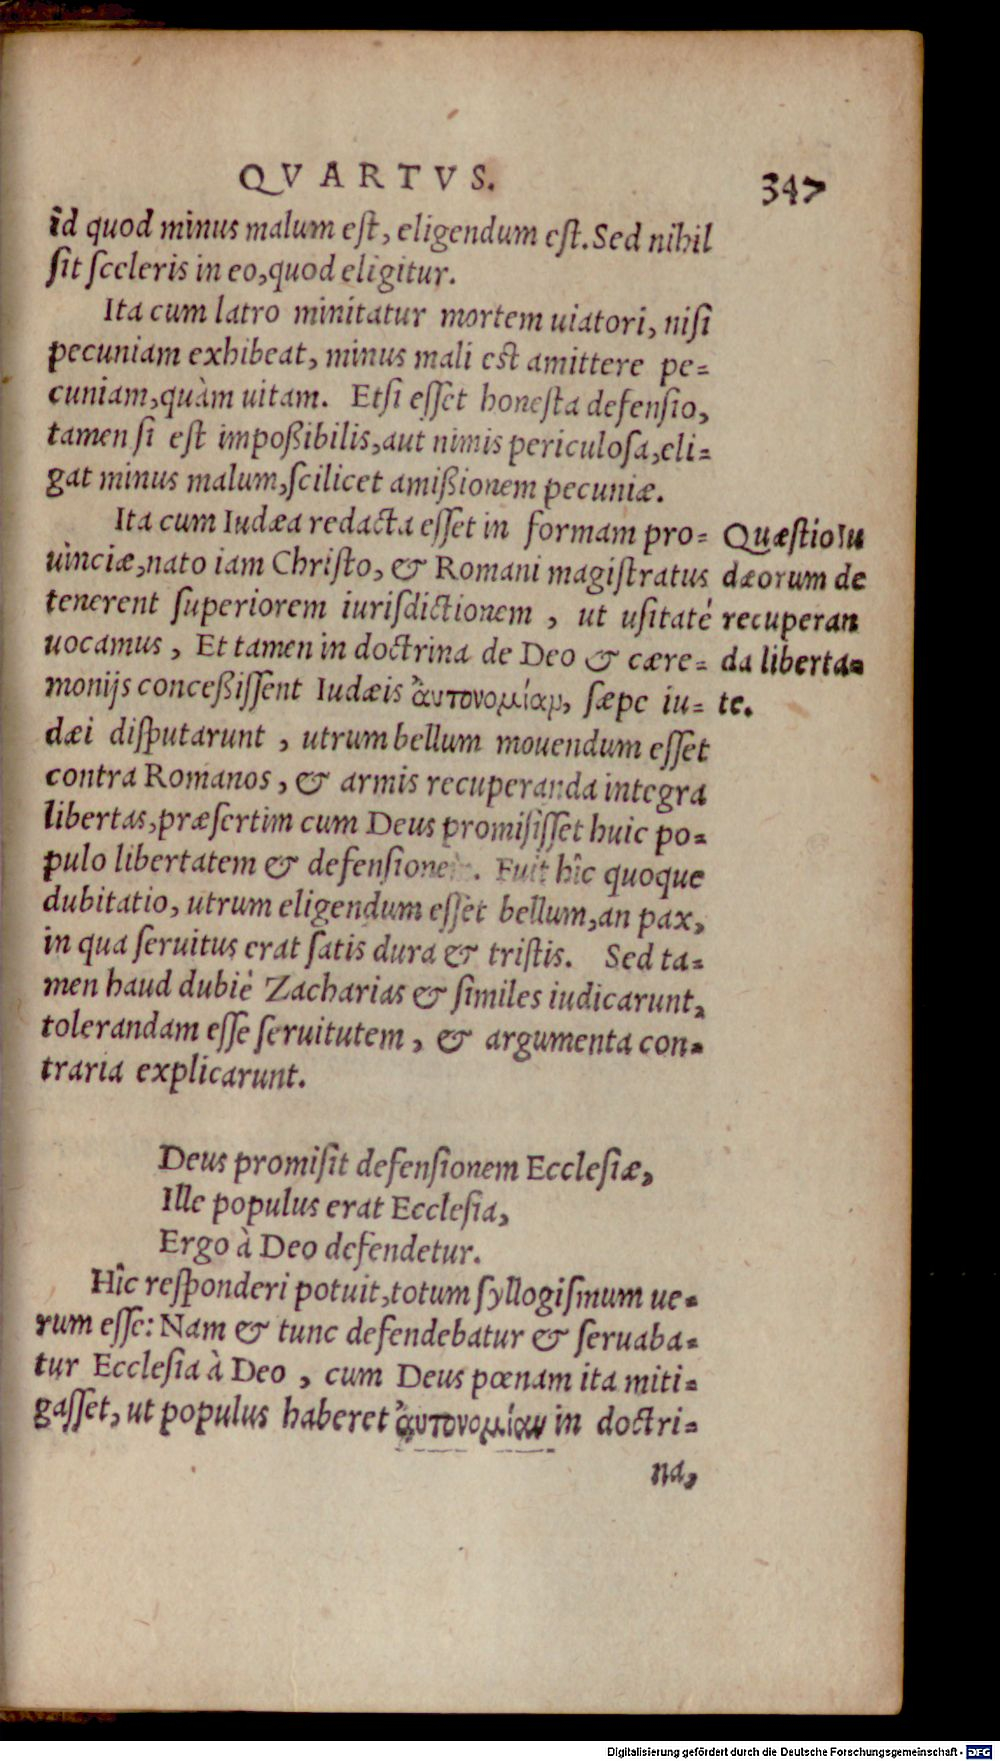 QVARTVS. 347
id quod minus malum eſt, eligendum eſt. Sed nihil
ſit ſceleris in eo, quod eligitur.
Ita cum latro minitatur mortem uiatori, niſi
pecuniam exhibeat, minus mali est amittere pe=
cuniam, quàm uitam. Etſi eſſet honeſta defenſio,
tamen ſi eſt impoßibilis, aut nimis periculoſa, eli=
gat minus malum, ſcilicet amißionem pecuniæ.
Ita cum Iudæa redacta eſſet in formam pro=
uinciæ, nato iam Chriſto, & Romani magiſtratus
tenerent ſuperiorem iuriſdictionem, ut uſitatè
uocamus, Et tamen in doctrina de Deo & cære=
monijs conceßiſſent Iudæis ἀυτονομίαν, ſæpe iu=
dæi diſputarunt, utrum bellum mouendum eſſet
contra Romanos, & armis recuperanda integra
libertas, præſertim cum Deus promiſiſſet huic po=
pulo libertatem & defenſionem. Fuit hîc quoque
dubitatio, utrum eligendum eſſet bellum, an pax,
in qua ſeruitus erat ſatis dura & triſtis. Sed ta=
men haud dubiè Zacharias & ſimiles iudicarunt,
tolerandam eſſe ſeruitutem, & argumenta con=
traria explicarunt.
Quæſtio Iu
dæorum de
recuperan
da liberta=
te.
Deus promiſit defenſionem Eccleſiæ,
Ille populus erat Eccleſia,
Ergo à Deo defendetur.
Hîc reſponderi potuit, totum ſyllogiſmum ue=
rum eſſe: Nam & tunc defendebatur & ſeruaba=
tur Eccleſia à Deo, cum Deus pœnam ita miti=
gaſſet, ut populus haberet ἀυτονομίαν in doctri=
na,
Digitalisierung gefördert durch die Deutsche Forschungsgemeinschaft - DFG